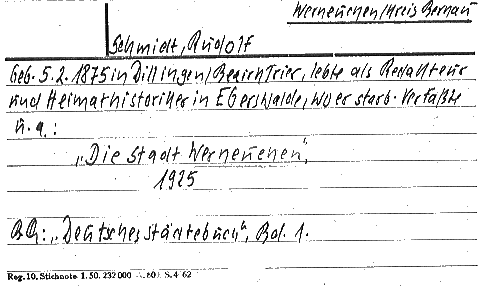 Werneuchen/Kreis Bernau
Schmidt, Rudolf
Geb. 5.2.1875 in Dillingen/Bezirk Trier, lebte als Redakteur
und Heimathistoriker in Eberswalde, wo er starb. Verfaßte
u.a.:
„Die Stadt Werneuchen",
1925
BQ: „Deutsches Städtebuch", Bd. 1.
Reg. 10. Stichnote 1. 50. 232 000 S. 4 62